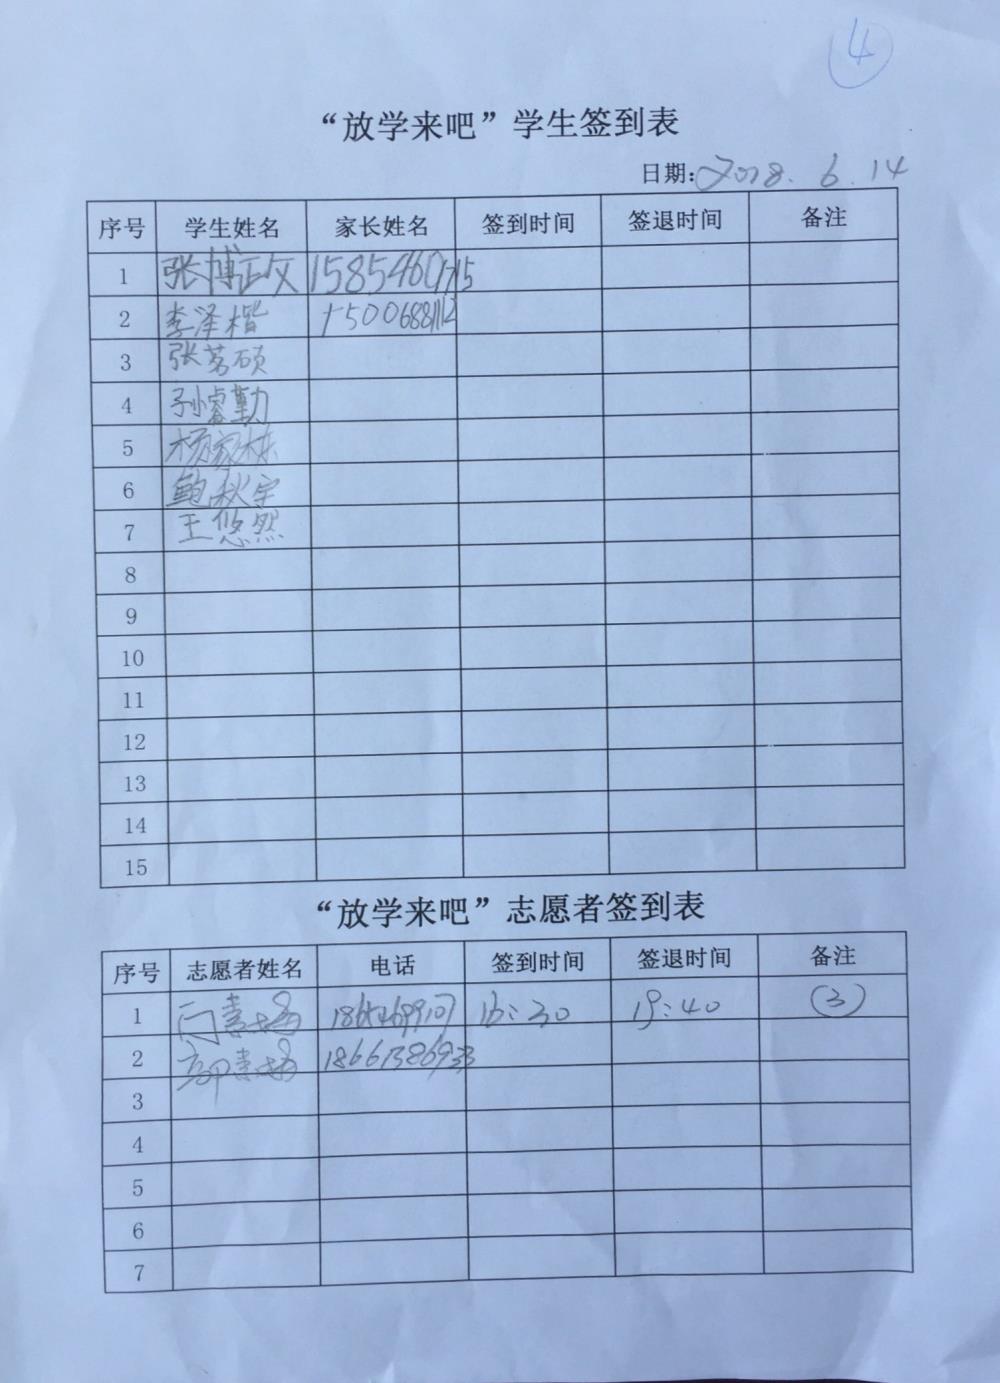 4
“放学来吧”学生签到表
日期:2018.6.14
序号 学生姓名 家长姓名 签到时间 签退时间 备注
1 张博正文 15854601715
2 李泽楷 15006881112
3 张茗硕
4 孙睿勤
5 杨家栋
6 鲍秋宇
7 王悠然
8
9
10
11
12
13
14
15
“放学来吧”志愿者签到表
序号 志愿者姓名 电话 签到时间 签退时间 备注
1 16:30 19:40 ③
2
3
4
5
6
7